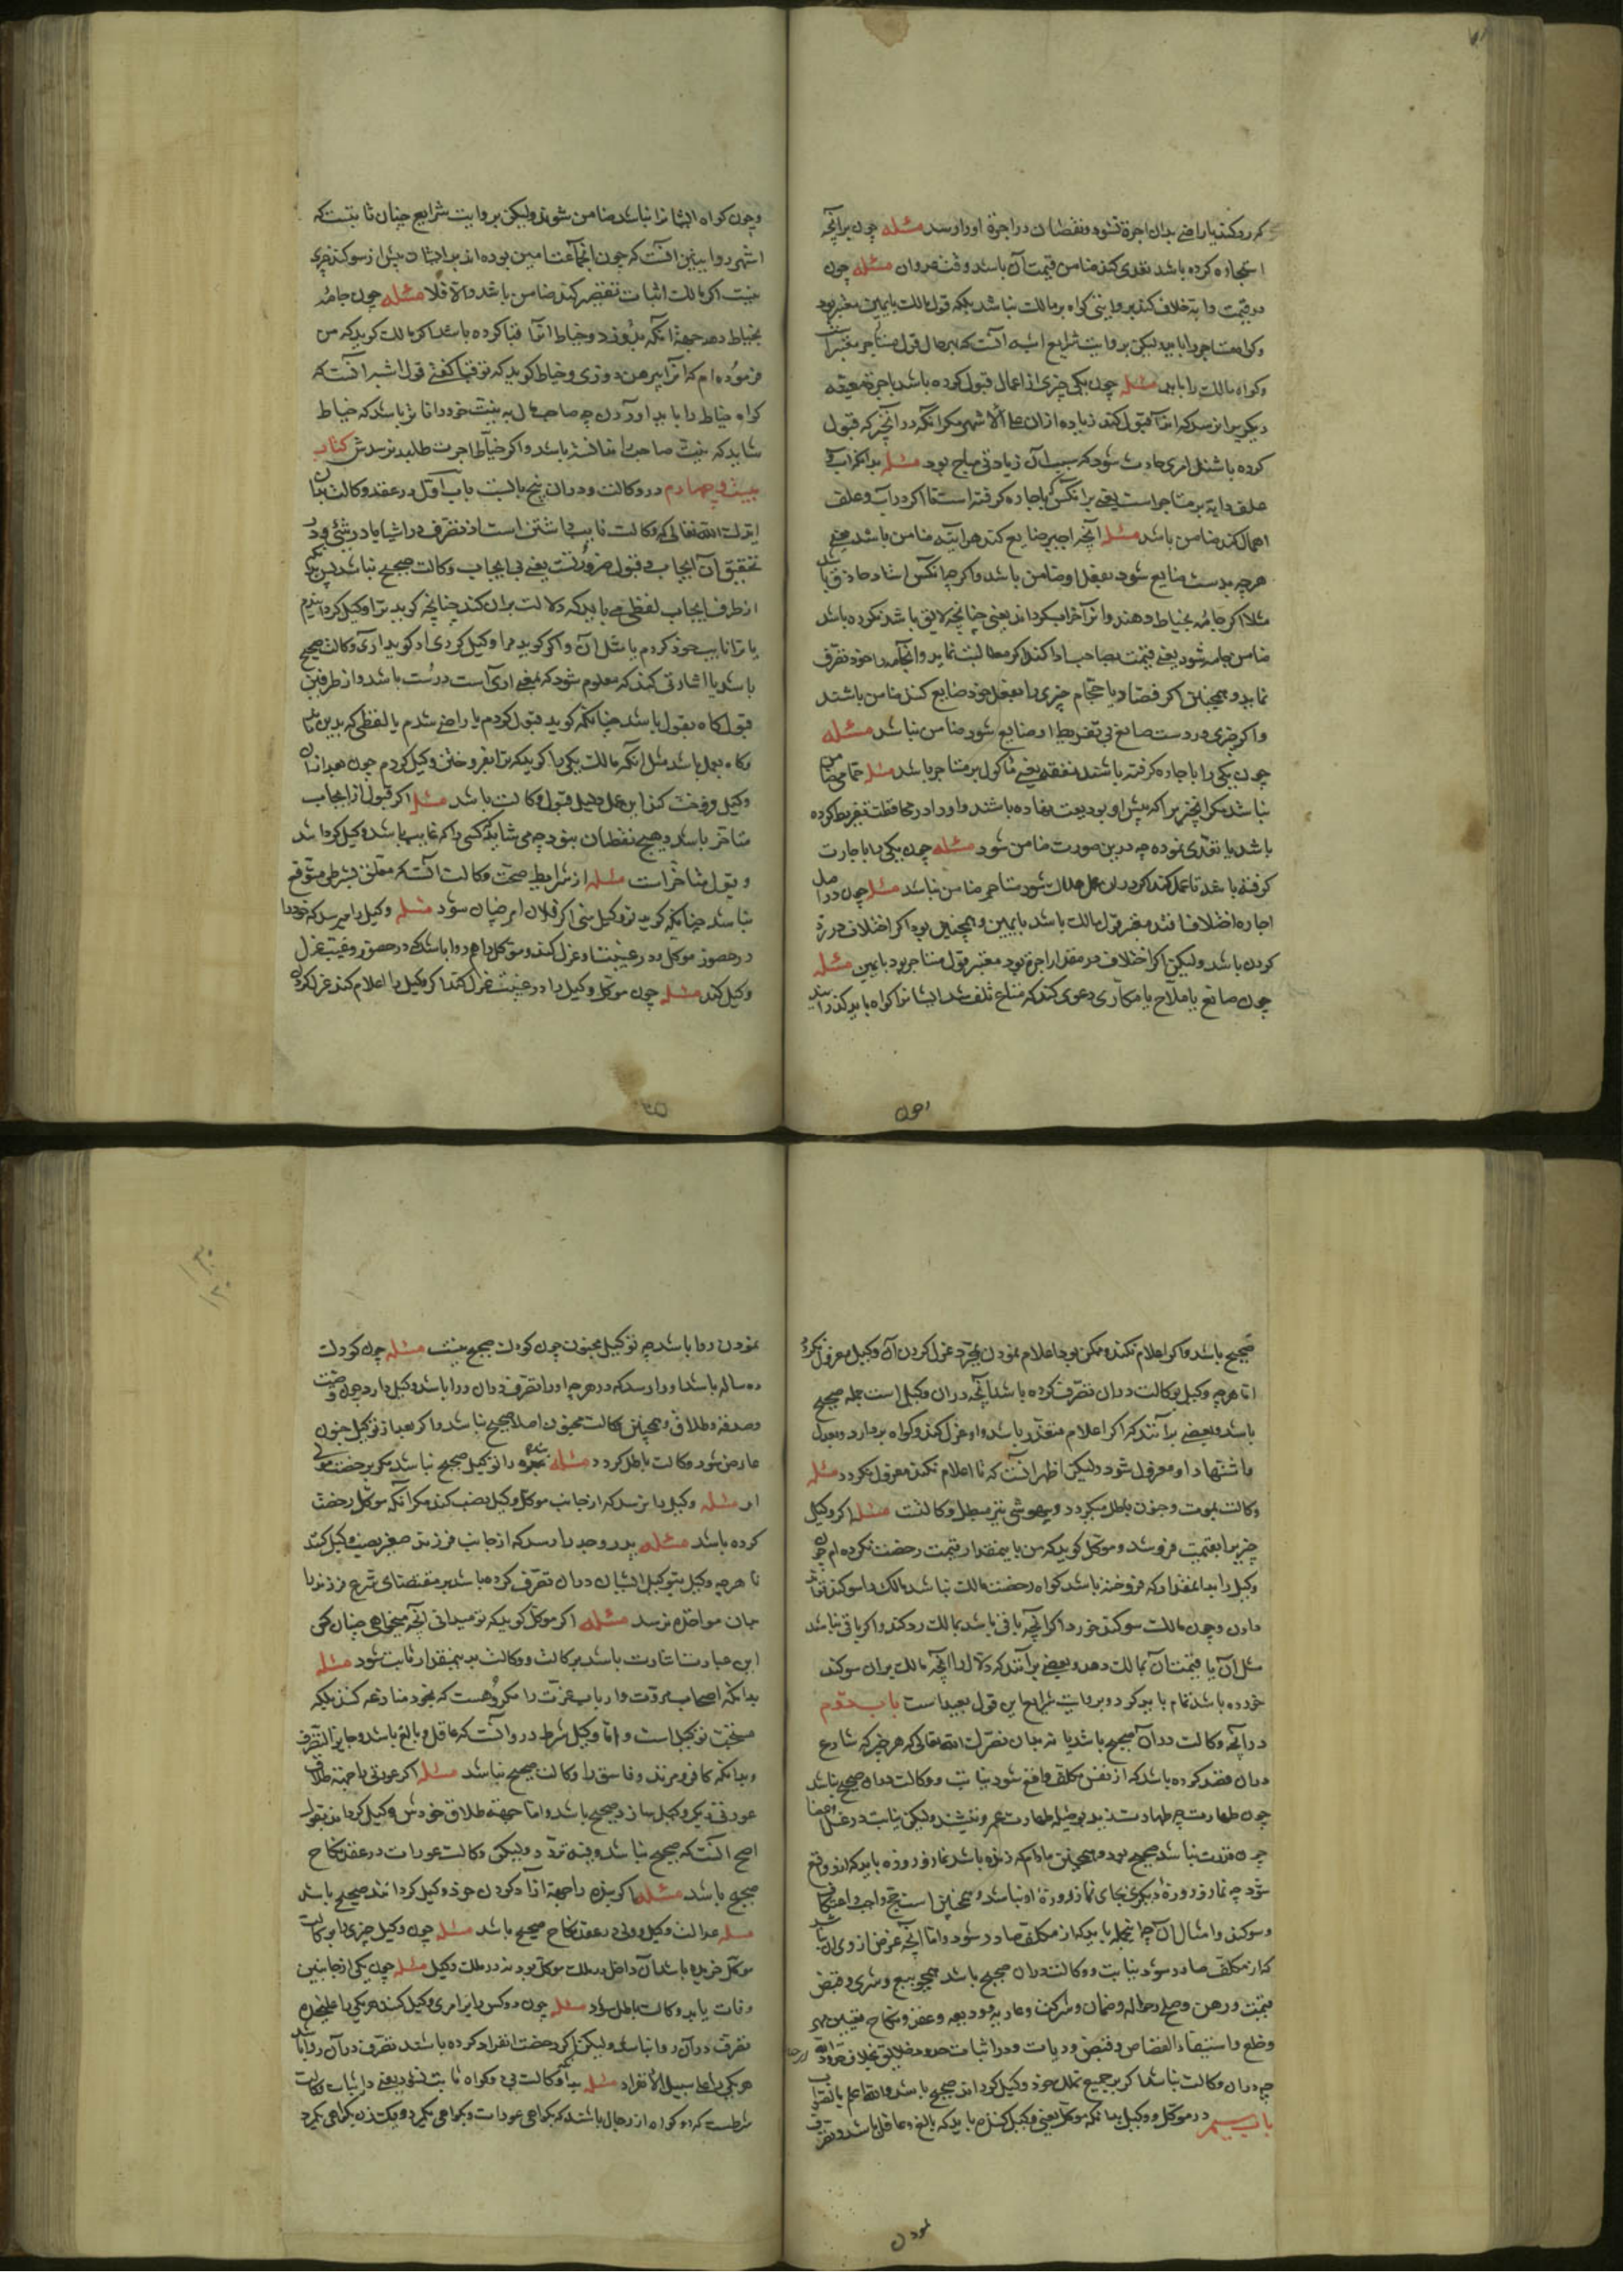 که رد کند یا راضی بدان اجرة شود و نقصان در اجرة او را رسد مسئله چون بر آنچه
استیجاره کرده باشد تعدی کند ضامن قیمت آن باشد وقت عدوان مسئله چون
در قیمت دابه خلاف کنند بروایتی کواه بر مالک نباشد بلکه قول مالک بایمین معتبر بود
وکواه مستاجر را باید لیکن بروایت شرایع اشبه آنست که بهر حال قول مستاجر معتبر است
وکواه مالک را باید مسئله چون یکی چیزی از اعمال قبول کرده باشد باجرة معینه
دیکریرا نرسد که انرا قبول کند زیاده از ان علی الاشهر مکر آنکه در آنچیز که قبول
کرده باشند امری حادث شود که بسبب آن زیادتی مباح بود مسئله بدانکه آب و
علف دابه بر مستاجر است یعنی بر آنکس که باجاره کرفته است تا اکر در آب و علف
اهمال کند ضامن باشد مسئله آنچه اجیر ضایع کند هر آینه ضامن باشد یعنی
هرچه بدست ضایع شود بفعل او ضامن باشد واکر چه آنکس استاد حاذق باشد
مثلا اکر جامه بخیاط دهند و انرا خراب کرداند یعنی چنانچه لایق باشد نکرده باشد
ضامن جامه شود یعنی قیمت بصاحب ادا کند اکر مطالبت نماید و آنجامه را خود تصرف
نماید و همچنین اکر فصاد و یا حجام چیزی را بفعل خود ضایع کند ضامن باشند
واکر چیزی در دست صانع بی تفریط او ضایع شود ضامن نباشد مسئله
چون یکی را باجاره کرفته باشند نفقه یعنی ماکول بر مستاجر باشد مسئله حمامی ضامن
نباشد مکر آنچیز را که پیش او بودیعت نهاده باشند و او را در محافظت تفریط کرده
باشد یا تعدی نموده چه درین صورت ضامن شود مسئله چون یکی را باجارت
کرفته باشد تا عمل کند اکر در ان عمل هلاک شود مستاجر ضامن نباشد مسئله چون در اصل
اجاره اختلاف افتد معتبر قول مالک باشد بایمین و همچنین بود اکر اختلاف در رد
کردن باشد ولیکن اکر اختلاف در مقدار اجرة بود معتبر قول مستاجر بود بایمین مسئله
چون صانع یا ملاح یا مکاری دعوی کند که متاع تلف شد ایشانرا کواه باید کذرانید
وچون
وچون کواه ایشانرا نباشد ضامن شوند ولیکن بروایت شرایع چنان ثابتست که
اشهر روایتین آنست که چون آنجماعت امین بوده اند بر ایشان پیش از سوکند چیزی
نیست اکر مالک اثبات تقصیر کند ضامن باشد والا فلا مسئله چون جامه
بخیاط دهد جهة آنکه بدوزد و خیاط انرا قبا کرده باشد اکر مالک کوید که من
فرموده ام که انرا پیرهن دوزی و خیاط کوید که تو قبا کفتی قول اشبه آنست که
کواه خیاط را باید آوردن چه صاحب مال به نیت خود دانا تر باشد که خیاط
شاید که نیت صاحب را ندانسته باشد واکر خیاط اجرت طلبد نرسدش کتاب
بیست و چهارم در وکالت و دران پنج بابست باب اول در عقد وکالت بدان
ایدک الله تعالی که وکالت نایب داشتن است از تصرف در اشیا یا در شئی و در
تحقیق آن ایجاب و قبول ضرورتست یعنی بی ایجاب وکالت صحیح نباشد پس یکی
از طرف ایجاب لفظی می باید که دلالت بران کند چنانچه کوید ترا وکیل کردانیدم
یا ترا نایب خود کردم یا مثل آن و اکر کوید مرا وکیل کردی او کوید اری وکالت صحیح
باشد یا اشارتی کند که معلوم شود که بمعنی اری است درست باشد و از طرف
قبول کاه بقول باشد چنانکه کوید قبول کردم یا راضی شدم یا لفظی که بدین ماند
وکاه بعمل باشد مثل آنکه مالک یکی را کوید که ترا بفروختن وکیل کردم چون بعد از ان
وکیل فروخت کند این عمل دلیل قبول وکالت باشد مسئله اکر قبول از ایجاب
متاخر باشد و هیچ نقصان نبود چه می شاید که کسی را که غایب باشد وکیل کردانند
وقبول متاخر است مسئله از شرایط صحت وکالت آنست که معلق بشرطی متوقع
نباشد چنانکه کوید تو وکیل منی اکر فلان امر چنان شود مسئله وکیل را میرسد که خود را
در حضور موکل و در غیبت او عزل کند و موکل را هم روا باشد که در حضور و غیبت عزل
وکیل کند مسئله چون موکل وکیل را در غیبت عزل کند اکر وکیل را اعلام کند عزل کردن
صحیح باشد واکر اعلام نکند و ممکن بود اعلام نمودن بمجرد عزل کردن آن وکیل معزول نکردد
اما هرچه وکیل بوکالت دران تصرف کرده باشد آنچه دران وکیل است جمله صحیح
باشد و بعضی بر آنند که اکر اعلام متعذر باشد و او عزل کند و کواه بر دارد و بعدل
باشتهاد او معزول شود ولیکن اظهر آنست که تا اعلام نکند معزول نکردد مسئله
وکالت بموت و جنون باطل میکردد و بیهوشی نیز مبطل وکالتست مسئله اکر وکیل
چیزیرا بقیمت فروشد و موکل کوید که من باینمقدار قیمت رخصت نکرده ام چون
وکیل را بدانمقدار که فروخته باشد کواه رخصت مالک نباشد مالک را سوکند باید
دادن وچون مالک سوکند خورد اکر آنچه باقی باشد بمالک رد کند واکر باقی نباشد
مثل آن یا قیمت آن بمالک دهد و بعضی بر آنند که دلال را آنچه مالک بران سوکند
خورده باشد تمام باید کرد و بروایت شرایع این قول بعید است باب دوم
در آنچه وکالت دران صحیح باشد یا نه بدان نصرک الله تعالی که هر چیز که شارع
دران قصد کرده باشد که از نفس مکلف واقع شود نیابت و وکالت دران صحیح نباشد
چون طهارت چه طهارت زید بوسیله طهارت عمرو نیست ولیکن نیابت در غسل اعضا
چون قدرت نباشد صحیح بود و همچنین مادام که زنده باشد نماز و روزه باید که از و واقع
شود چه نماز و روزه دیکری بجای نماز و روزه او نباشد و همچنین است حج واجب و اعتکاف
وسوکند و امثال آن چه اینجمله باید که از مکلف صادر شود و اما آنچه غرض از وی آن باشد
که از مکلف صادر شود نیابت و وکالت دران صحیح باشد همچو بیع و شری و قبض
قیمت و رهن و صلح و حواله و ضمان و شرکت و عاریه و ودیعه و عقد و نکاح و تعیین مهر
وخلع و استیفاء القصاص و قبض و دیات و در اثبات حدود خلایق بخلاف حدود الله
چه دران وکالت نباشد اکر بر جمیع تملک خود وکیل کرداند صحیح باشد والله اعلم بالصواب
باب سیم در موکل و وکیل بدانکه موکل یعنی وکیل کننده باید که بالغ و عاقل باشد و تصرف
نمودن
نمودن روا باشد چه توکیل مجنون چون کودک صحیح نیست مسئله چون کودک
ده ساله باشد او را رسد که در هرچه او را تصرف دران روا باشد وکیل دارد چون وصیت
وصدقه و طلاق و همچنین وکالت مجنون اصلا صحیح نباشد واکر بعد از توکیل جنون
عارض شود وکالت باطل کردد مسئله بنده را توکیل صحیح نباشد مکر برخصت مولی
او مسئله وکیل را نرسد که از جانب موکل وکیل نصب کند مکر آنکه موکل رخصت
کرده باشد مسئله پدر و جد را رسد که از جانب فرزند صغیر نصب وکیل کند
تا هرچه وکیل بتوکیل ایشان دران تصرف کرده باشد بر مقتضای شرع فرزند را
بدان مواخذه نرسد مسئله اکر موکل کوید که تو میدانی آنچه میخواهی چنان کن
این عبارت اشارت باشد بوکالت و وکالت بدینمقدار ثابت شود مسئله
بدانکه اصحاب مروت و ارباب عزت را مکروهست که بخود منازعه کنند بلکه
مستحب توکیل است و اما وکیل شرط درو آنست که عاقل و بالغ باشد و جایز التصرف
وبدانکه کافر و مرتد و فاسق را وکالت صحیح نباشد مسئله اکر عورتی را جهة طلاق
عورتی دیکر وکیل سازد صحیح باشد و اما جهة طلاق خودش وکیل کرداند بقول
اصح آنست که صحیح نباشد و فیه تردد ولیکن وکالت عورات در عقد نکاح
صحیح باشد مسئله اکر بنده را جهة آزاد کردن خود وکیل کردانند صحیح باشد
مسئله عدالت وکیل ولی در عقد نکاح صحیح باشد مسئله چون وکیل چیزی را بوکالت
موکل خریده باشد آن داخل در ملک موکل بود نه در ملک وکیل مسئله چون یکی از جانبین
وفات یابد وکالت باطل شود مسئله چون دو کس را بر امری وکیل کند هر یکی را علیحده
تصرف دران روا نباشد ولیکن اکر رخصت انفراد کرده باشد تصرف دران روا باشد
هر یکی را علی سبیل الانفراد مسئله بدانکه وکالت بی دو کواه ثابت نشود یعنی در اثبات وکالت
شرطست که دو کواه از رجال باشند که بکواهی عورات و بکواهی یکمرد و یک زن بکواهی یکمرد